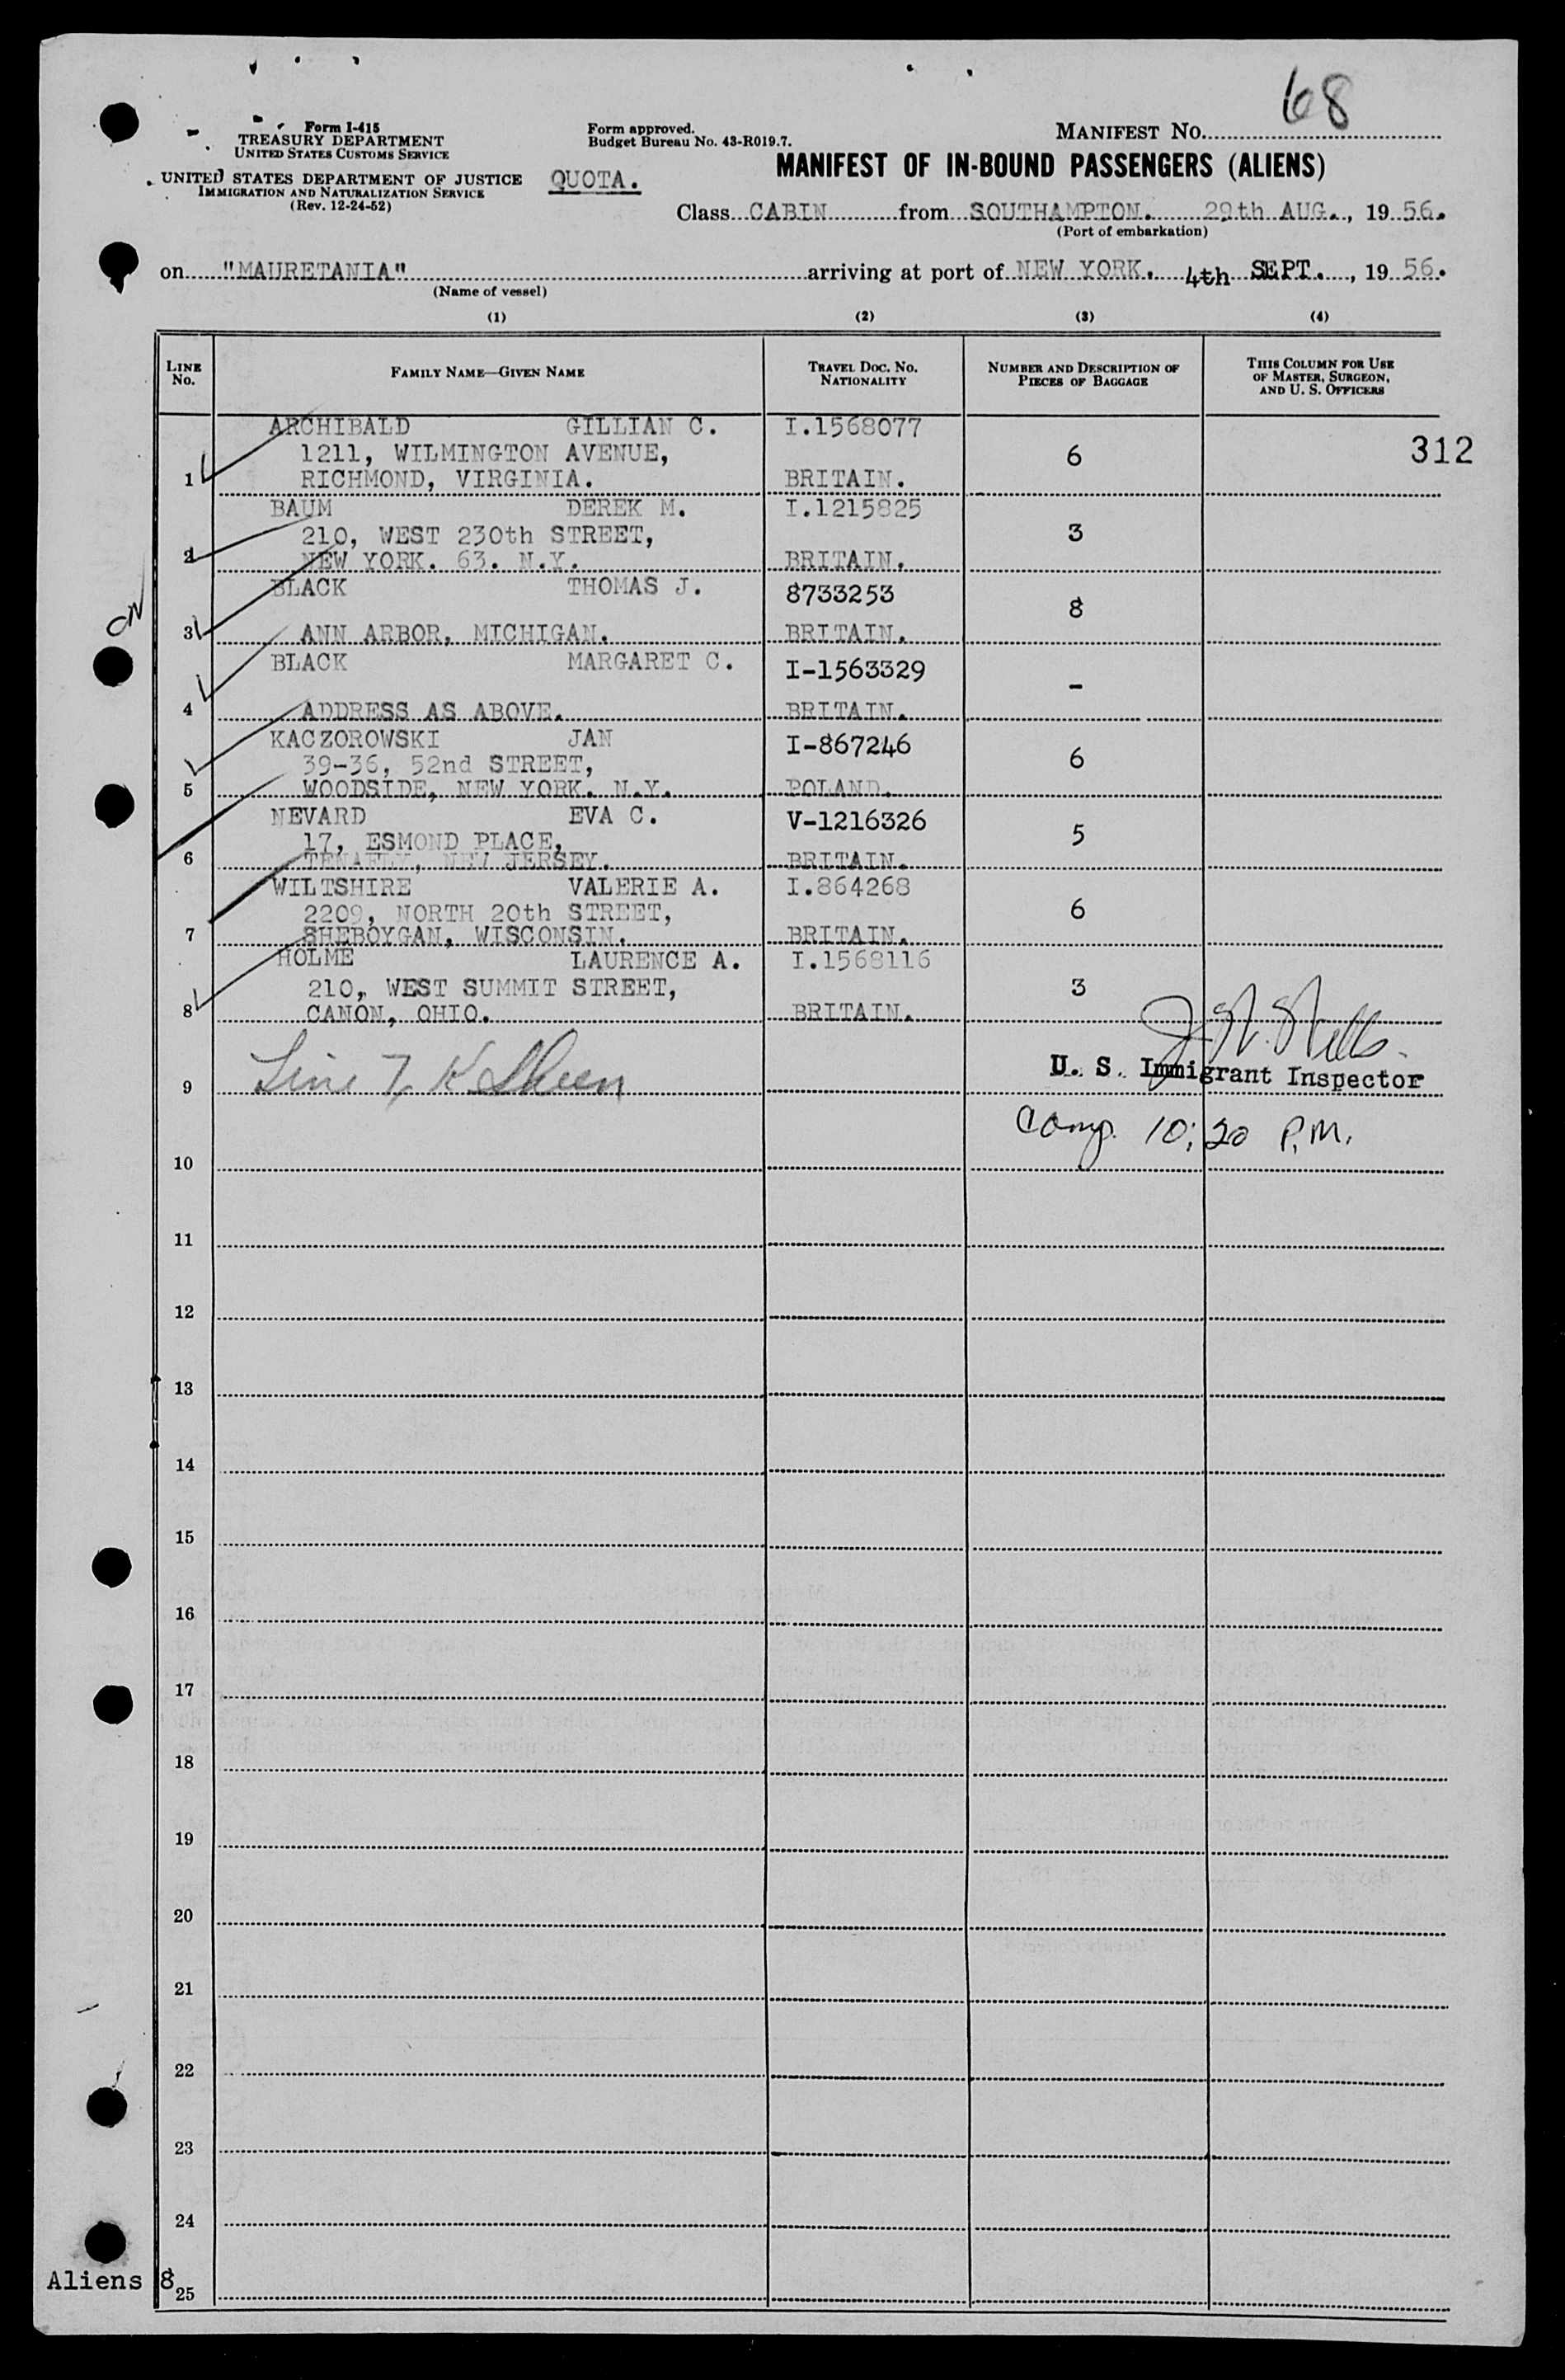 68
Form I-415
TREASURY DEPARTMENT
UNITED STATES CUSTOMS SERVICE
UNITED STATES DEPARTMENT OF JUSTICE
IMMIGRATION AND NATURALIZATION SERVICE
(Rev. 12-24-52)
Form approved.
Budget Bureau No. 43-R019.7.
QUOTA.
MANIFEST NO.
MANIFEST OF IN-BOUND PASSENGERS (ALIENS)
Class CABIN from SOUTHAMPTON. 29th AUG., 1956.
(Port of embarkation)
on "MAURETANIA" arriving at port of NEW YORK. 4th SEPT., 1956.
(Name of vessel)
(1) (2) (3) (4)
LINE NO. FAMILY NAME—GIVEN NAME TRAVEL DOC. NO. NATIONALITY NUMBER AND DESCRIPTION OF PIECES OF BAGGAGE THIS COLUMN FOR USE OF MASTER, SURGEON, AND U. S. OFFICERS
ARCHIBALD GILLIAN C. I.1568077
1211, WILMINGTON AVENUE, 6 312
1 RICHMOND, VIRGINIA. BRITAIN.
BAUM DEREK M. I.1215825
210, WEST 230th STREET, 3
2 NEW YORK. 63. N.Y. BRITAIN.
BLACK THOMAS J. 8733253
8
3 ANN ARBOR, MICHIGAN. BRITAIN.
BLACK MARGARET C. I-1563329
-
4 ADDRESS AS ABOVE. BRITAIN.
KACZOROWSKI JAN I-867246
39-36, 52nd STREET, 6
5 WOODSIDE, NEW YORK. N.Y. POLAND.
NEVARD EVA C. V-1216326
17, ESMOND PLACE, 5
6 TENAFLY, NEW JERSEY. BRITAIN.
WILTSHIRE VALERIE A. I.864268
2209, NORTH 20th STREET, 6
7 SHEBOYGAN, WISCONSIN. BRITAIN.
HOLME LAURENCE A. I.1568116
210, WEST SUMMIT STREET, 3
8 CANON, OHIO. BRITAIN.
Line 7
U. S. Immigrant Inspector
9
Comp. 10:20 P.M.
10
11
12
13
14
15
16
17
18
19
20
21
22
23
24
Aliens 8
25